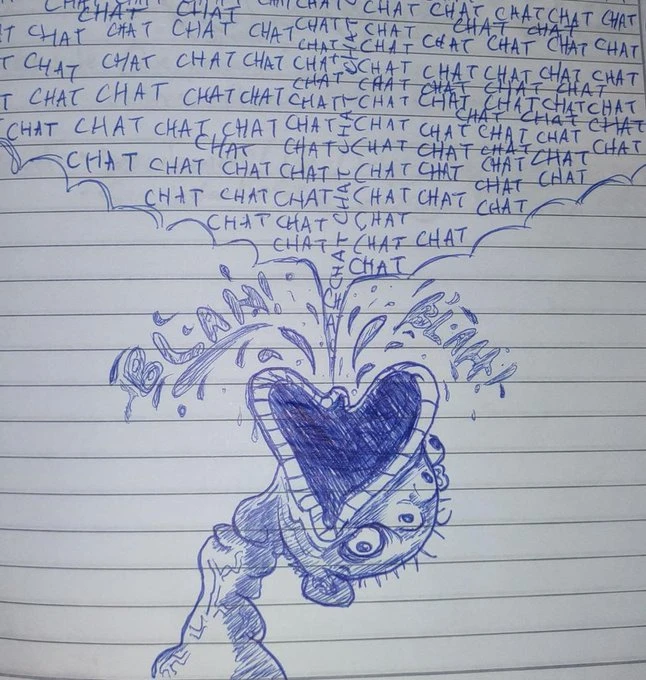 CHAT CHAT CHAT CHAT CHAT CHAT CHAT CHAT CHAT
CHAT CHAT CHAT CHAT
CHAT CHAT CHAT CHAT CHAT CHAT CHAT CHAT CHAT CHAT
CHAT CHAT
CHAT CHAT CHAT CHAT CHAT CHAT CHAT CHAT CHAT CHAT
CHAT CHAT CHAT CHAT CHAT
CHAT CHAT CHAT CHAT CHAT CHAT CHAT CHAT CHAT CHAT
CHAT CHAT CHAT
CHAT CHAT CHAT CHAT CHAT CHAT CHAT CHAT CHAT CHAT
CHAT CHAT CHAT CHAT CHAT CHAT
CHAT CHAT CHAT CHAT CHAT CHAT CHAT CHAT
CHAT CHAT CHAT CHAT CHAT CHAT
CHAT CHAT CHAT CHAT
CHAT CHAT CHAT
CHAT
CHAT CHAT CHAT CHAT CHAT
BLAH! BLAH!